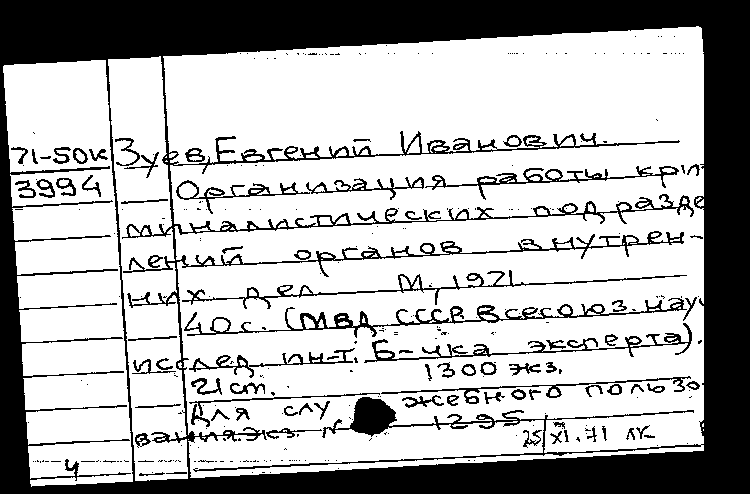 71-50к Зуев, Евгений Иванович.
3994 Организация работы кри-
миналистических подразде
лений органов внутрен-
них дел. М., 1971.
40 с. (МВД СССР. Всесоюз. науч
исслед. ин-т. Б-чка эксперта).
21 ст. 1300 экз.
Для служебного пользо
вания. экз. N 1295
25/XI.71 ЛК
4